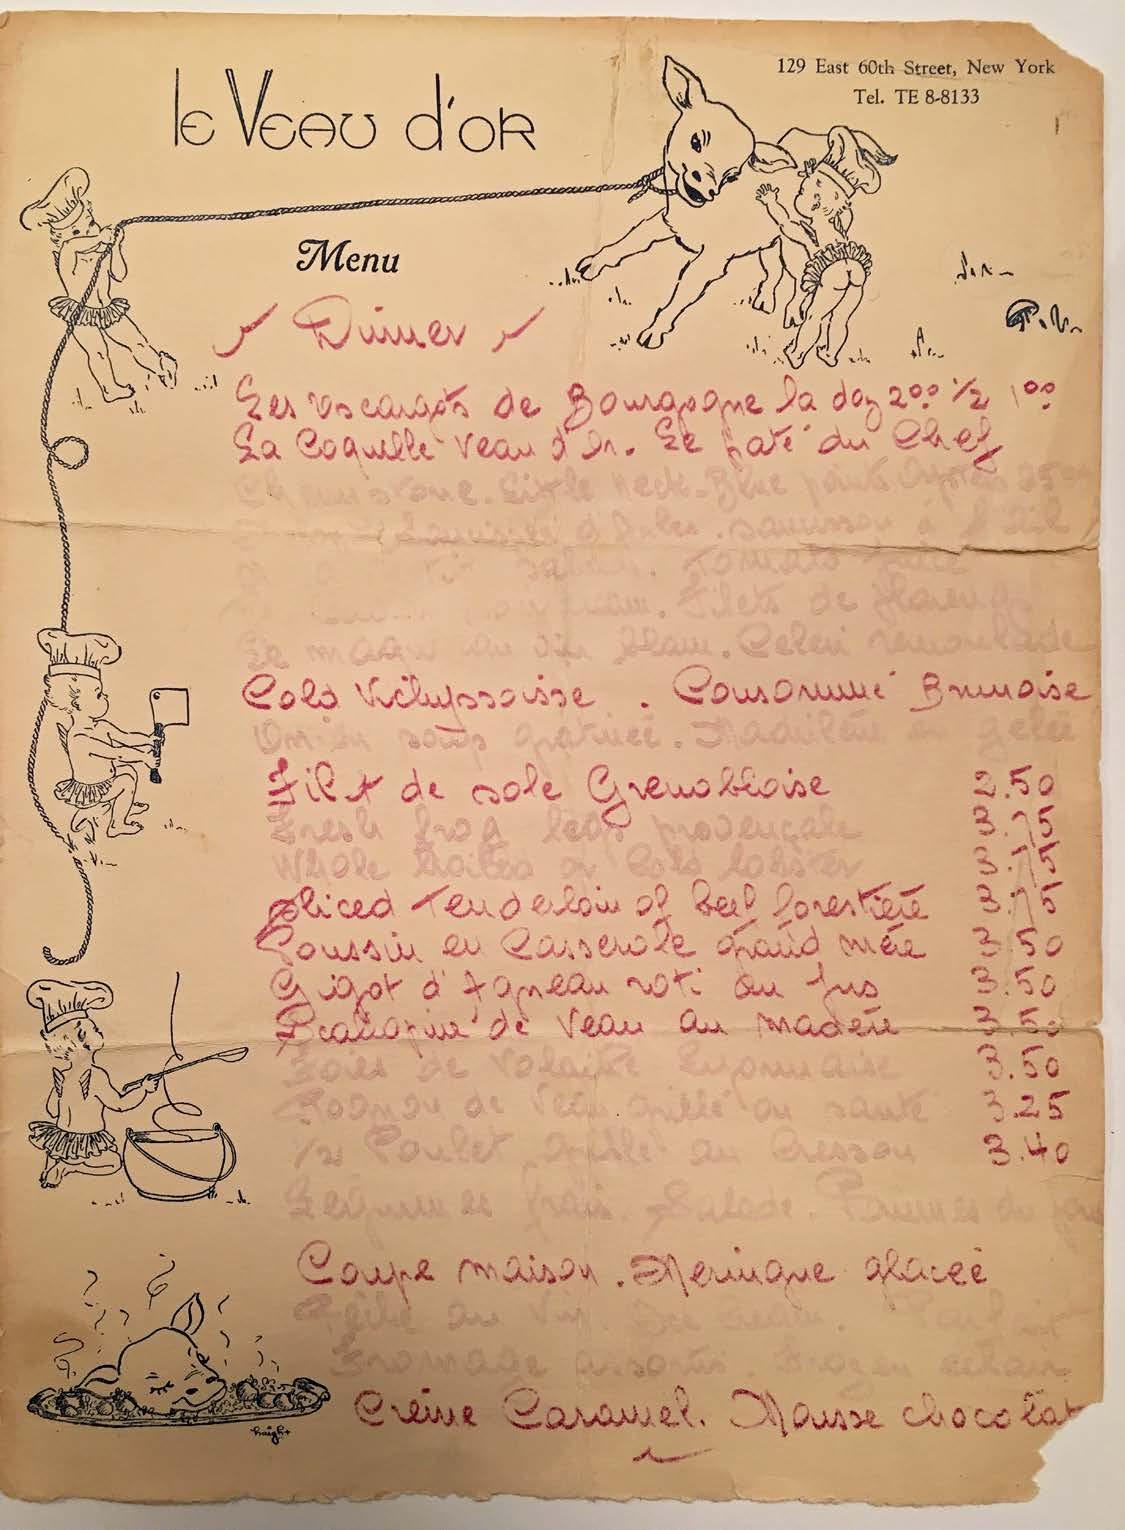 le Veau d'or
129 East 60th Street, New York
Tel. TE 8-8133
Menu
Dinner
Les escargots de Bourgogne la doz 2.00 1/2 1.00
La Coquille Veau d'Or. Le paté du Chef
Little Neck. Blue points Oysters
saucisson à l'ail
Tomato Juice
Filets de
au vin blanc. Celeri remoulade
Cold Vichyssoisse. Consommé Brunoise
Onion soup gratinée. Madrilène en gelée
Filet de sole Grenobloise 2.50
Fresh frog legs provençale 3.75
Whole cold lobster 3.75
Sliced Tenderloin of beef forestière 3.75
Poussin en Casserole grand mère 3.50
Gigot d'Agneau roti au jus 3.50
Scalopine de Veau au madère 3.50
Foies de Volaille Lyonnaise 3.50
Rognon de Veau grillé ou sauté 3.25
1/2 Poulet grillé au cresson 3.40
Légumes frais. Salade. Pommes du
Coupe maison. Meringue glacée
au Vin. Ice cream. Parfait
Fromage assortis.
Crème Caramel. Mousse chocolat
haight